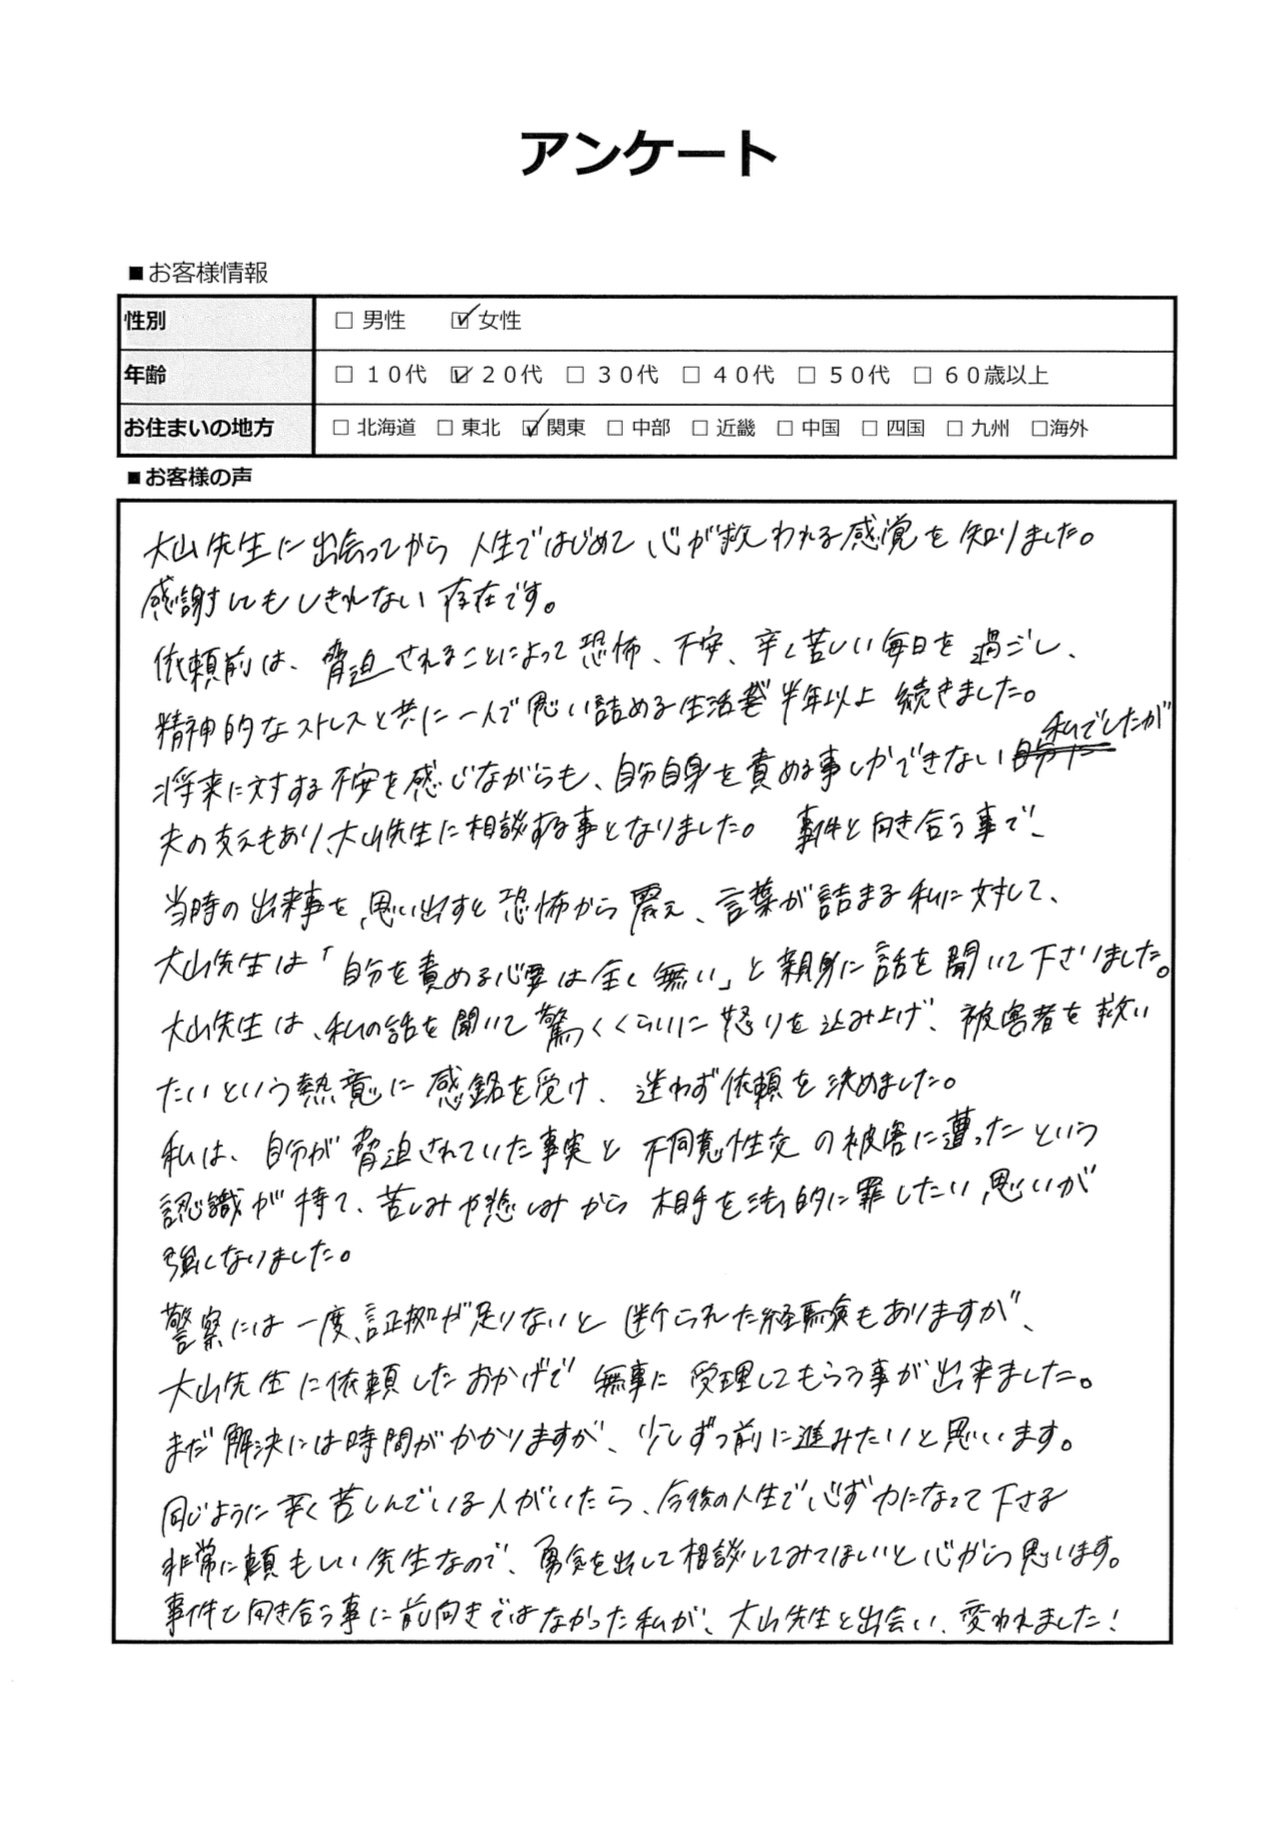 アンケート
■お客様情報
性別 □ 男性 ☑ 女性
年齢 □ 10代 ☑ 20代 □ 30代 □ 40代 □ 50代 □ 60歳以上
お住まいの地方 □ 北海道 □ 東北 ☑ 関東 □ 中部 □ 近畿 □ 中国 □ 四国 □ 九州 □海外
■お客様の声
大山先生に出会ってから 人生ではじめて 心が救われる感覚を知りました。
感謝してもしきれない存在です。
依頼前は、脅迫されることによって恐怖、不安、辛く苦しい毎日を過ごし、
精神的なストレスと共に一人で思い詰める生活が半年以上 続きました。
将来に対する不安を感じながらも、自分自身を責める事しかできない私でしたが
夫の支えもあり、大山先生に相談する事となりました。 事件と向き合う事で、
当時の出来事を思い出すと恐怖から震え、言葉が詰まる私に対して、
大山先生は「自分を責める必要は全く無い」と親身に話を聞いて下さりました。
大山先生は、私の話を聞いて驚くくらいに怒りを込み上げ、被害者を救い
たいという熱意に感銘を受け、迷わず依頼を決めました。
私は、自分が脅迫されていた事実と 不同意性交の被害に遭ったという
認識が持て、苦しみや悲しみから 相手を法的に罪したい思いが
強くなりました。
警察には一度、証拠が足りないと断られた経験もありますが、
大山先生に依頼したおかげで 無事に受理してもらう事が出来ました。
まだ解決には時間がかかりますが、少しずつ前に進みたいと思います。
同じように辛く苦しんでいる人がいたら、今後の人生で必ず力になって下さる
非常に頼もしい先生なので、勇気を出して相談してみてほしいと心から思います。
事件と向き合う事に前向きではなかった私が、大山先生と出会い、変われました!